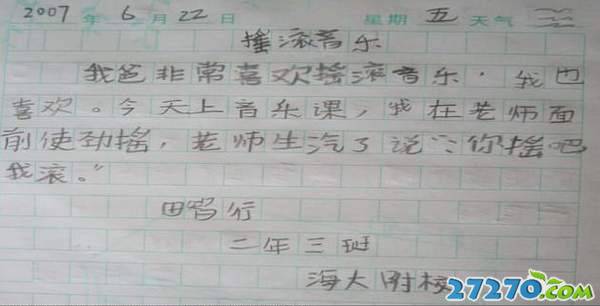 2007 年 6 月 22 日 星期 五 天气
摇滚音乐
我爸非常喜欢摇滚音乐．我也
喜欢。今天上音乐课，我在老师面
前使劲摇，老师生汽了说：“你摇吧
我滚。”
二年三班
海大附校
27270.com